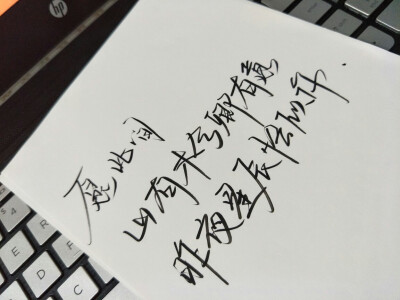 hp
愿此间
山有木兮卿有意
昨夜星辰恰似你.